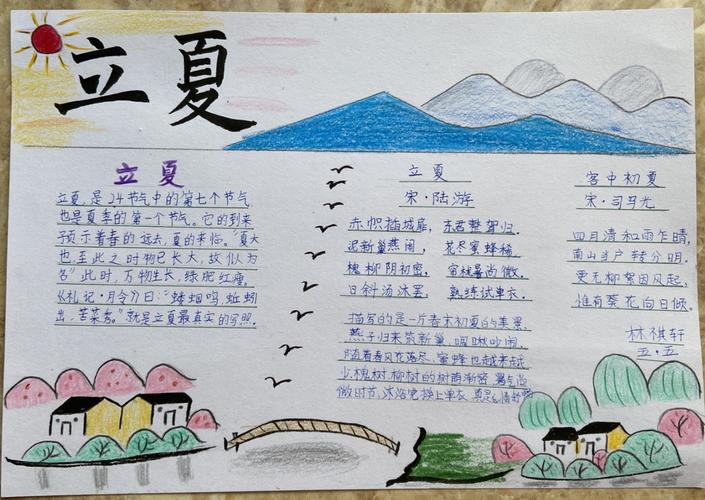 立夏
立夏
立夏,是24节气中的第七个节气,
也是夏季的第一个节气。它的到来
预示着春的远去,夏的来临。"夏大
也,至此之时物已长大,故以为
名"此时,万物生长,绿肥红瘦。
《礼记·月令》曰:"蝼蝈鸣,蚯蚓
出,苦菜秀。"就是立夏最真实的写照。
立夏
宋·陆游
赤帜插城扉,东君整驾归。
泥新巢燕闹,花尽蜜蜂稀。
槐柳阴初密,帘栊暑尚微。
日斜汤沐罢,熟练试单衣。
描写的是一片春末初夏的美景,
燕子归来筑新巢,呢喃吵闹,
随着春风花落尽,蜜蜂也越来越
少,槐树,柳树的树荫渐密,暑气尚
微时节,沐浴完换上单衣,
客中初夏
宋·司马光
四月清和雨乍晴,
南山当户转分明。
更无柳絮因风起,
惟有葵花向日倾。
林祺轩
五·五